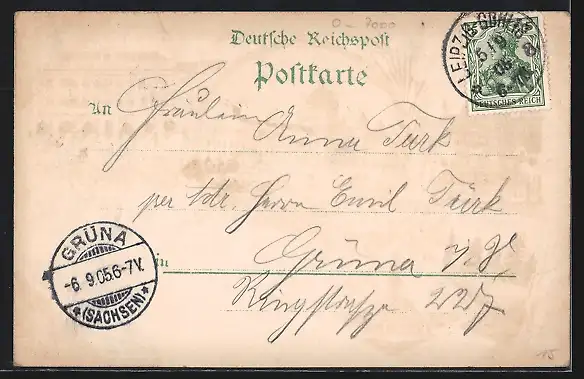 Deutsche Reichspost
Postkarte
LEIPZIG-GOHLIS
5 9
05
6-7N
DEUTSCHES REICH
An Fräulein Anna Türk
per Adr. Herrn Emil Türk
in Grüna i/S.
Ringstraße 227
GRÜNA
-6.9.05.6-7V.
*(SACHSEN)*
15